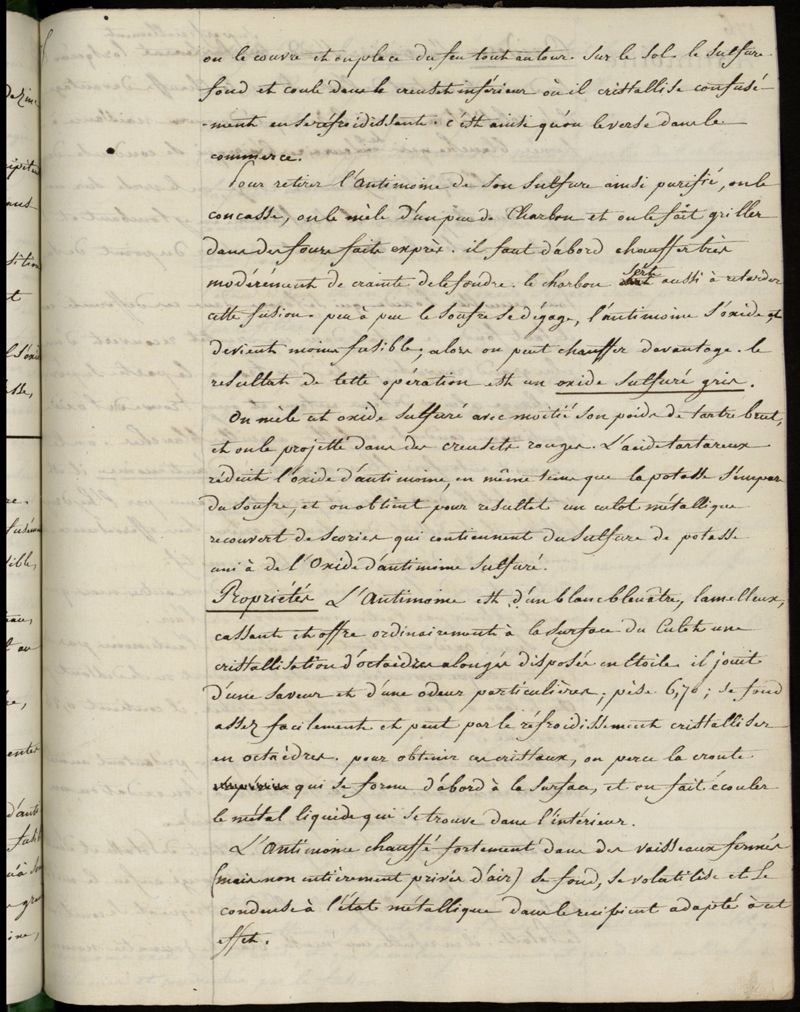 on le couvre et on place du feu tout autour. Sur le sol. le sulfure
fond et coule dans le creuset inférieur où il cristallise confusé-
-ment en se réfroidissant. c'est ainsi qu'on le verse dans le
commerce.
Pour retirer l'Antimoine de son sulfure ainsi purifié, on le
concasse, on le mêle d'un peu de Charbon et on le fait griller
dans des fours faits exprès. il faut d'abord chauffer très
modérément de crainte de le fondre. le charbon sert aussi à retarder
cette fusion. peu à peu le soufre se dégage, l'antimoine s'oxide et
devient moins fusible, alors on peut chauffer davantage. le
resultat de cette opération est un oxide sulfuré gris.
On mêle cet oxide sulfuré avec moitié son poids de tartre brut,
et on le projette dans des creusets rouges. L'acide tartareux
réduit l'oxide d'antimoine, en même tems que la potasse s'empare
du soufre, et on obtient pour resultat un culot métallique
recouvert de scories qui contiennent du sulfure de potasse
uni à de l'Oxide d'antimoine sulfuré.
Propriétés L'Antimoine est d'un blanc bleuâtre, lamelleux,
cassant et offre ordinairement à la surface du Culot une
cristallisation d'octaèdres alongés disposés en étoile. il jouit
d'une saveur et d'une odeur particulières; pèse 6,70; se fond
assez facilement et peut par le réfroidissement cristalliser
en octaèdres. pour obtenir ces cristaux, on perce la croute
supérieure qui se forme d'abord à la surface, et on fait écouler
le métal liquide qui se trouve dans l'intérieur.
L'Antimoine chauffé fortement dans des vaisseaux fermés
(mais non entièrement privés d'air) se fond, se volatilise et se
condense à l'état métallique dans le recipient adapté à cet
effet.